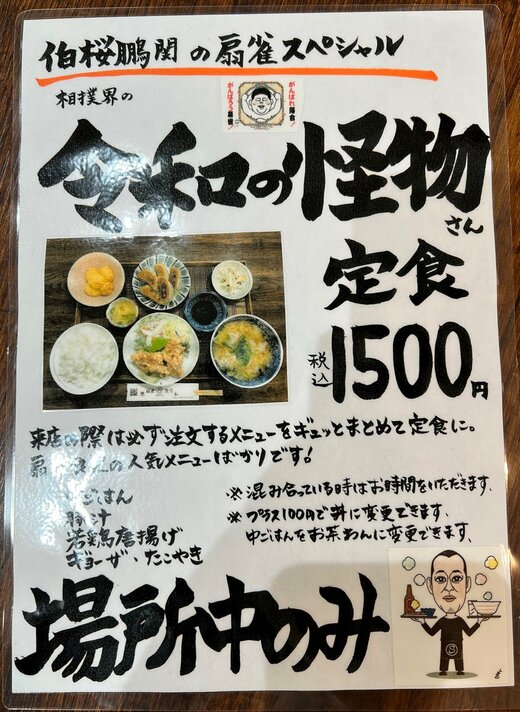 伯桜鵬関の扇雀スペシャル
相撲界の
がんばれ陽台!
がんばろう扇雀!
令和の怪物さん
定食
税込1500円
来店の際は必ず注文するメニューをギュッとまとめて定食に。
扇 の人気メニューばかりです!
中ごはん
豚汁
若鶏唐揚げ
ギョーザ・たこやき
※混み合っている時はお時間をいただきます。
※プラス100円で丼に変更できます。
中ごはんをお茶わんに変更できます。
場所中のみ